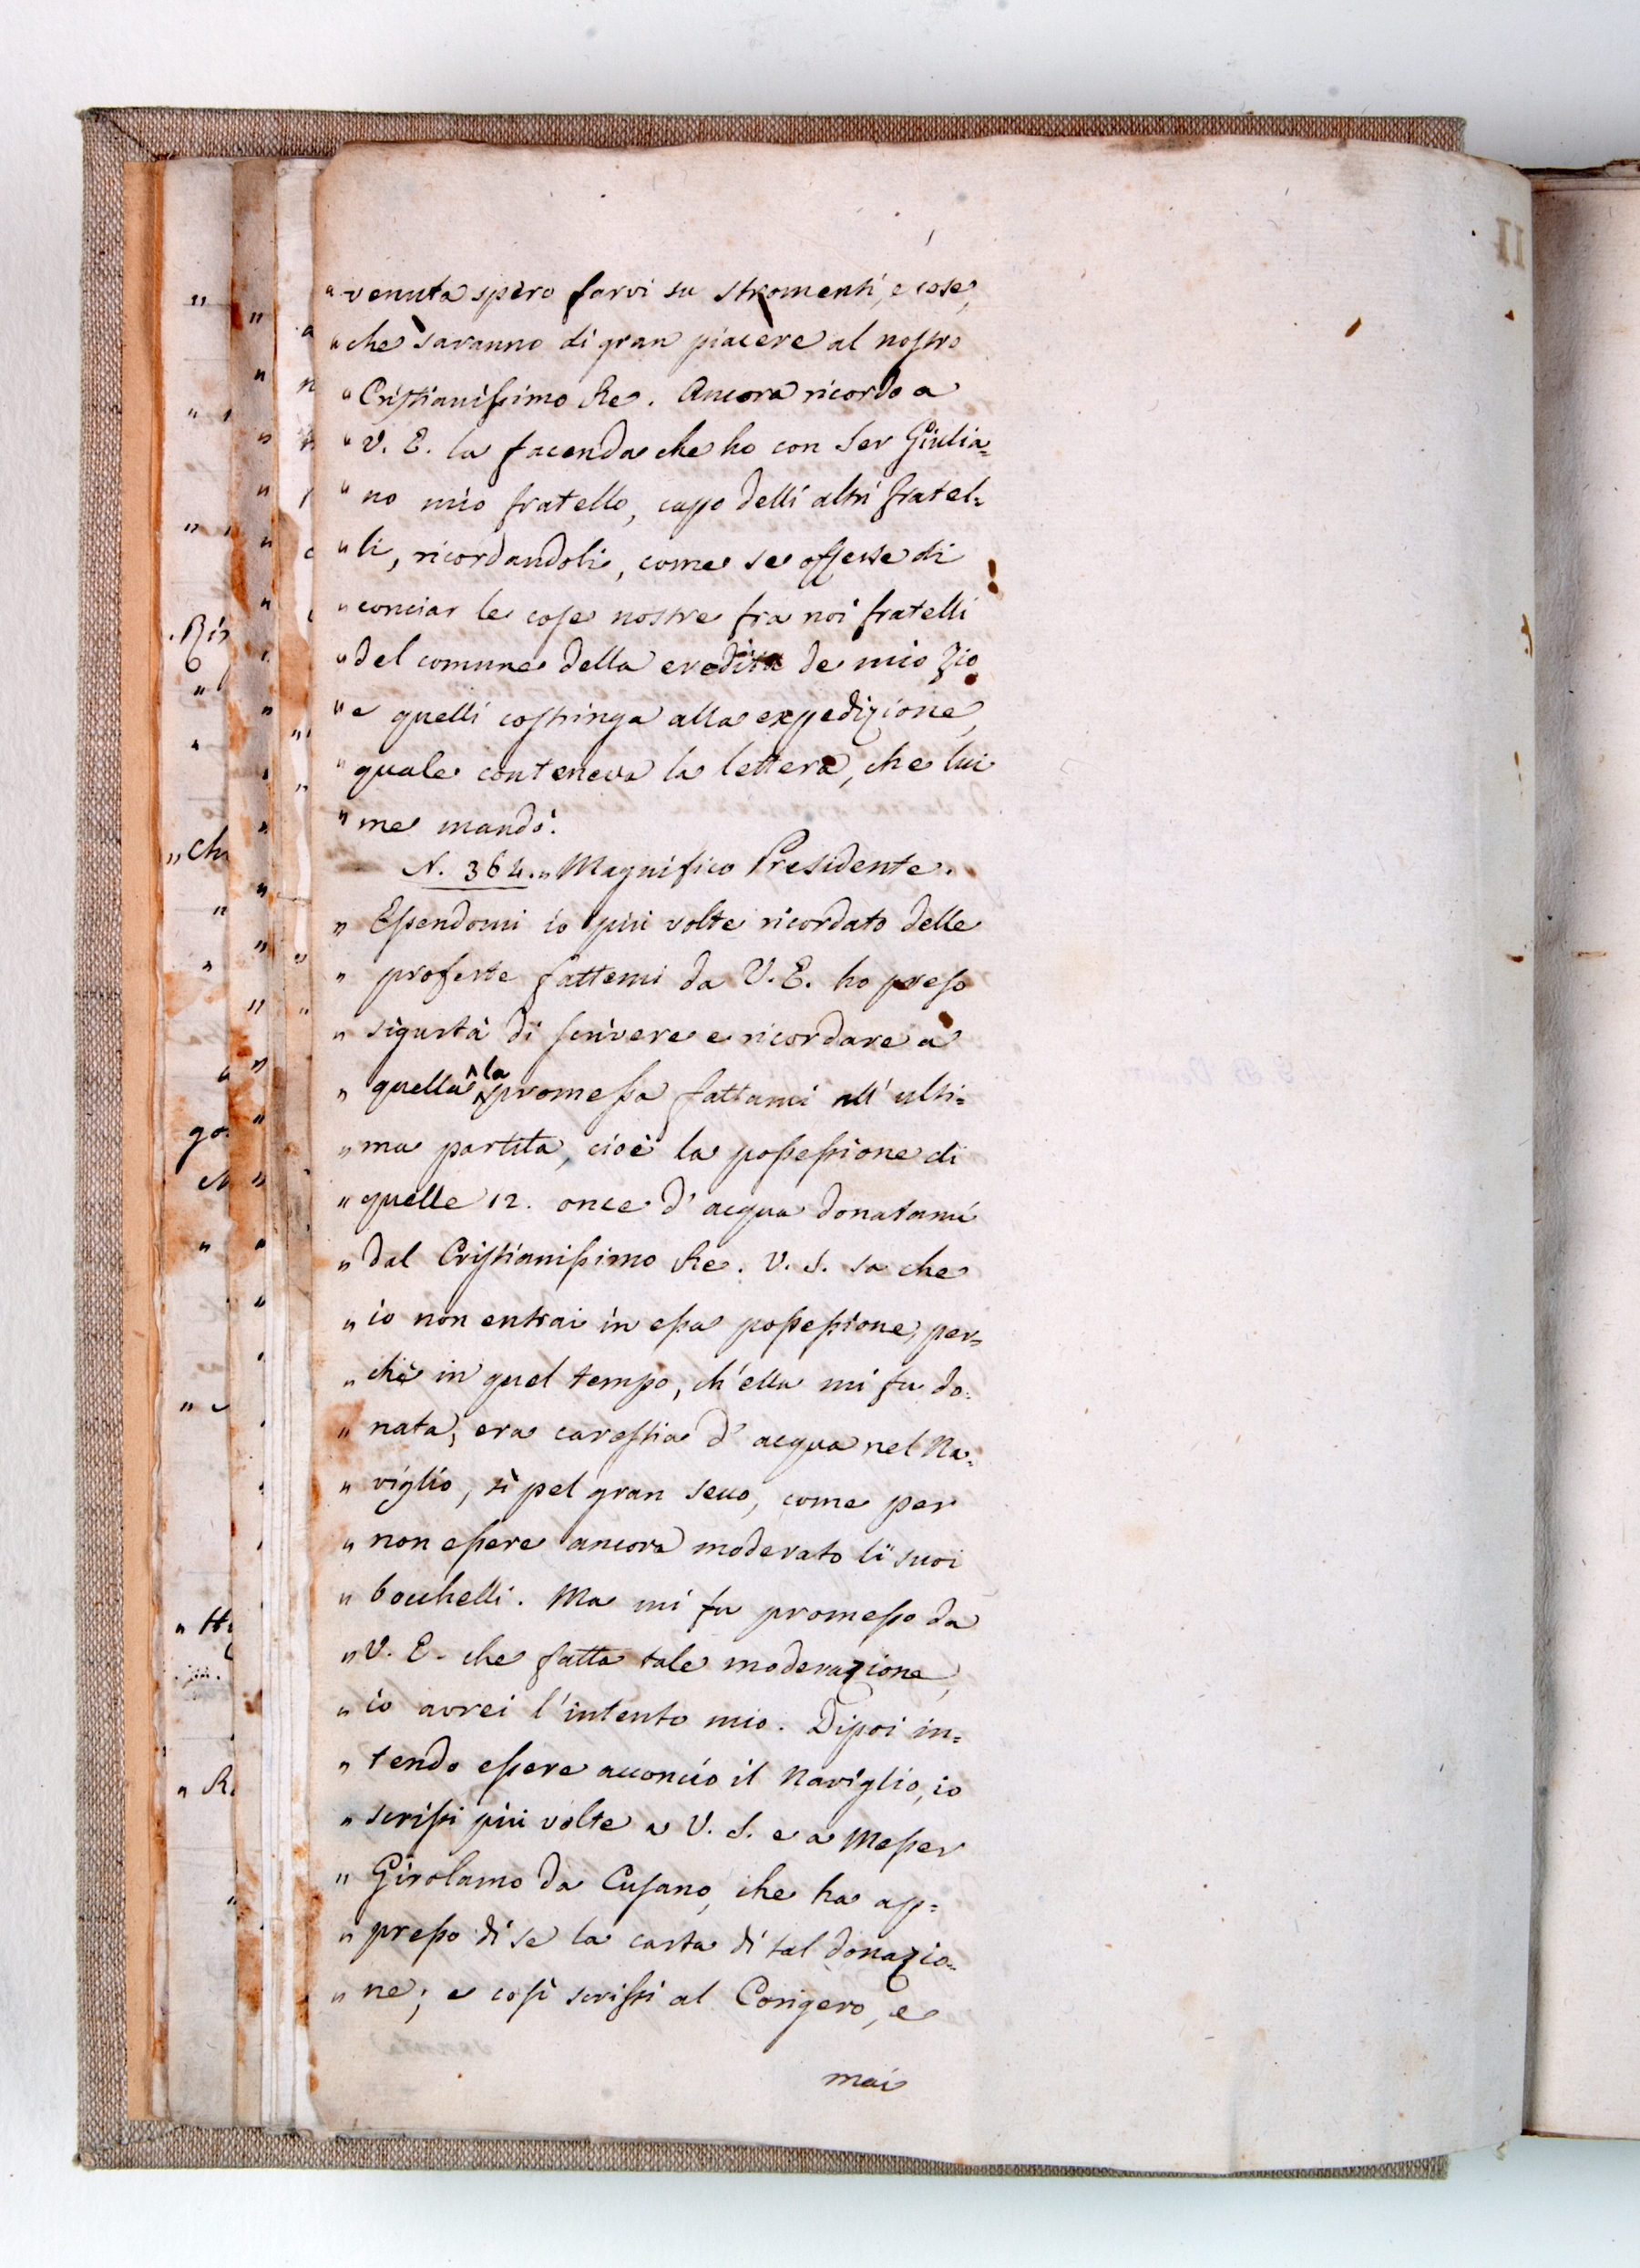 „ venuta spero farvi su stromenti, e cose,
„ che saranno di gran piacere al nostro
„ Cristianissimo Re. Ancora ricordo a
„ V. E. la facenda che ho con Ser Giulia=
„ no mio fratello, capo delli altri fratel=
„ li, ricordandoli, come se offerse di
„ conciar le cose nostre fra noi fratelli
„ del comune della eredità de mio zio
„ e quelli costringa alla expedizione,
„ quale conteneva la lettera, che lui
„ me mandò.
N. 364. „ Magnifico Presidente.
„ Essendomi io più volte ricordato delle
„ proferte fattemi da V. E. ho preso
„ sigurtà di scrivere e ricordare a
„ quella la promessa fattami all' ulti=
„ ma partita, cioè la possessione di
„ quelle 12. once d' acqua donatami
„ dal Cristianissimo Re. V. S. sa che
„ io non entrai in essa possessione, per=
„ chè in quel tempo, ch' ella mi fu do=
„ nata, era carestia d' acqua nel Na=
„ viglio, sì pel gran secco, come per
„ non essere ancora moderato li suoi
„ bocchelli. Ma mi fu promesso da
„ V. E. che fatta tale moderazione,
„ io avrei l' intento mio. Dipoi in=
„ tendo essere acconcio il Naviglio, io
„ scrissi più volte a V. S. e a Messer
„ Girolamo da Cusano, che ha ap=
„ presso di se la carta di tal donazio=
„ ne; e così scrissi al Corigero, e
mai